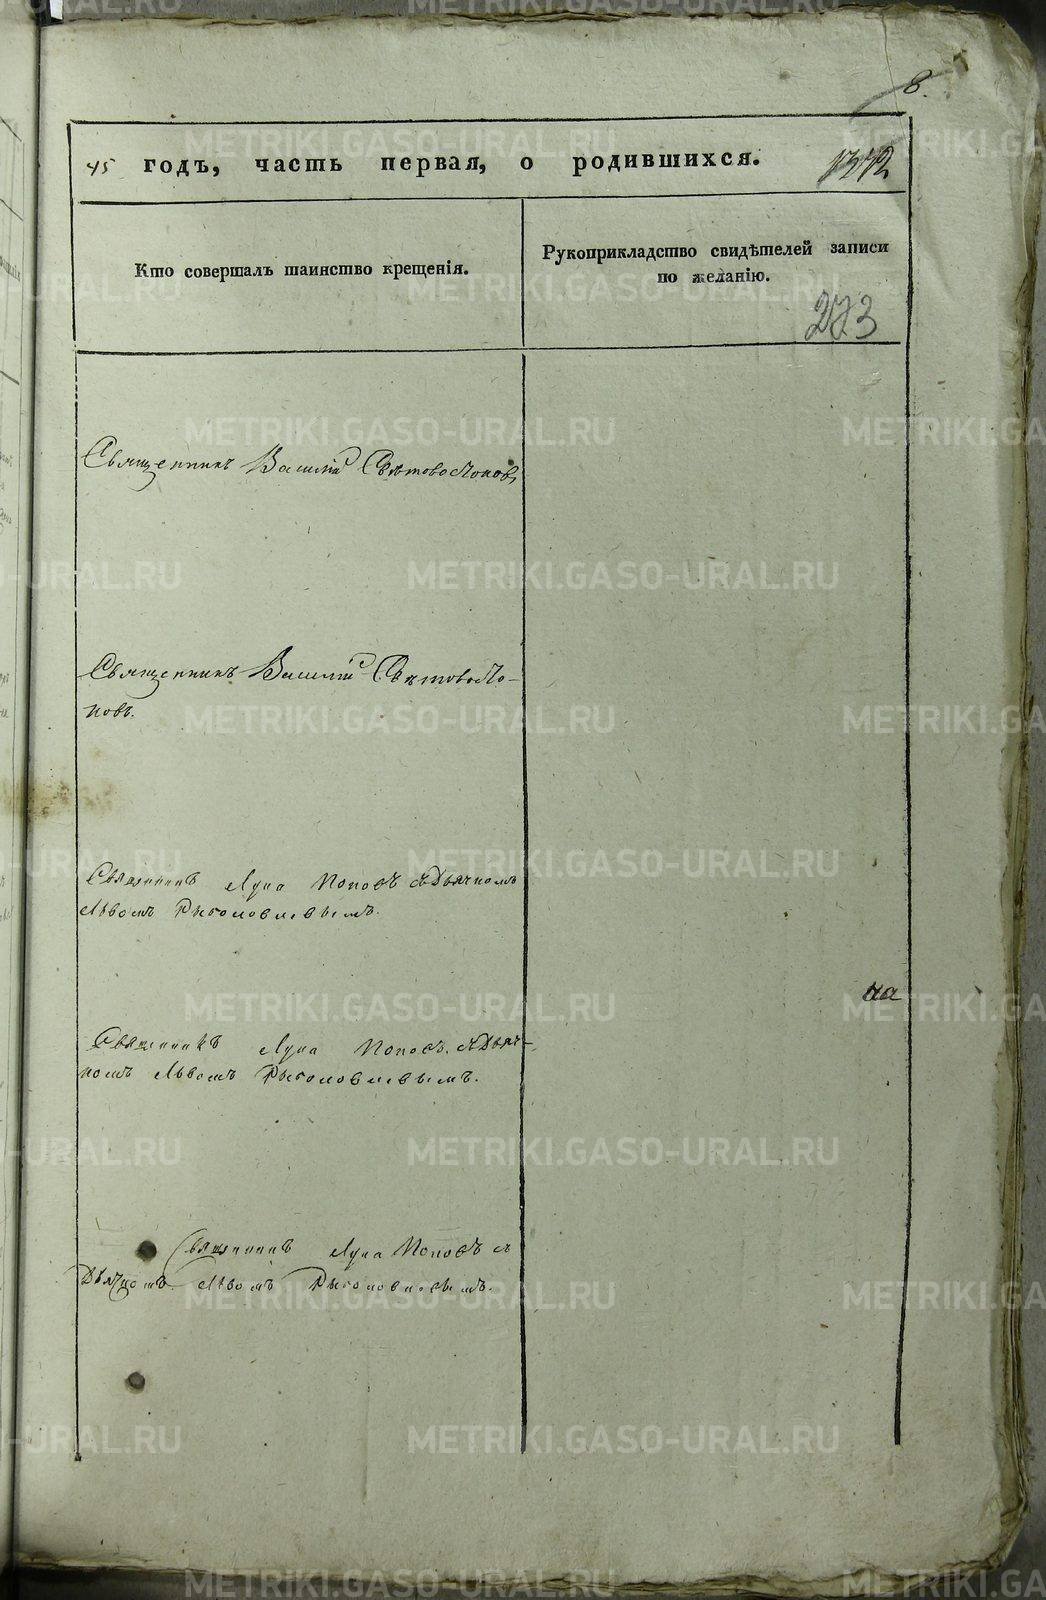 8.
45 годъ, часть первая, о родившихся.
Кто совершалъ таинство крещенія.
Рукоприкладство свидѣтелей записи
по желанію.
273
Священникъ Василій Свѣтовостоковъ
Священникъ Василій Свѣтовосто-
ковъ.
Священникъ Лука Поповъ съ Дьячкомъ
Львомъ
Священникъ Лука Поповъ съ Дьяч-
комъ Львомъ
на
Священникъ Лука Поповъ съ
Дьячкомъ Львомъ
METRIKI.GASO-URAL.RU